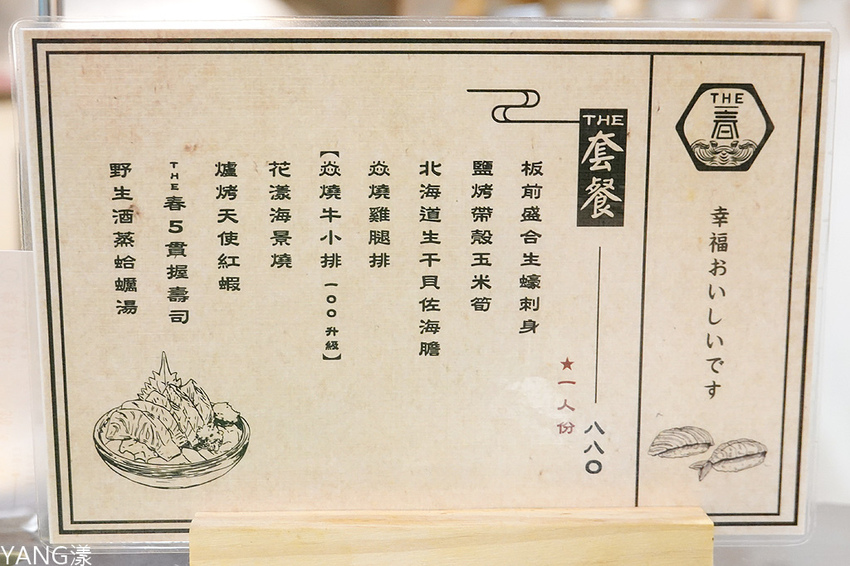 THE
春
幸福おいしいです
THE
套餐
八八〇
★一人份
板前盛合生蠔刺身
鹽烤帶殼玉米筍
北海道生干貝佐海膽
焱燒雞腿排
【焱燒牛小排 一〇〇升級】
花漾海景燒
爐烤天使紅蝦
THE春5貫握壽司
野生酒蒸蛤蠣湯
YANG漾